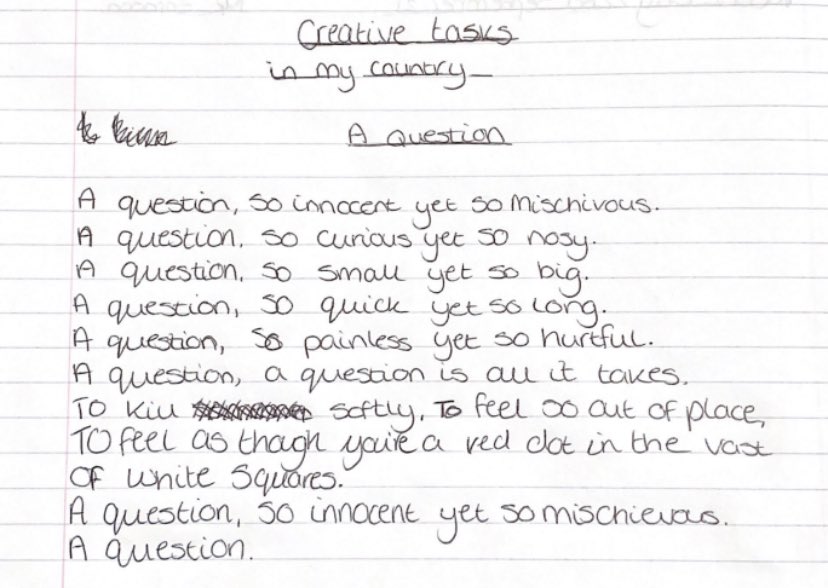 Creative tasks
in my country
A Question
A question, so innocent yet so mischivous.
A question, so curious yet so nosy.
A question, so small yet so big.
A question, so quick yet so long.
A question, so painless yet so hurtful.
A question, a question is all it takes.
To kill softly, To feel so out of place,
TO feel as though you're a red dot in the vast
OF white squares.
A question, so innocent yet so mischievous.
A question.